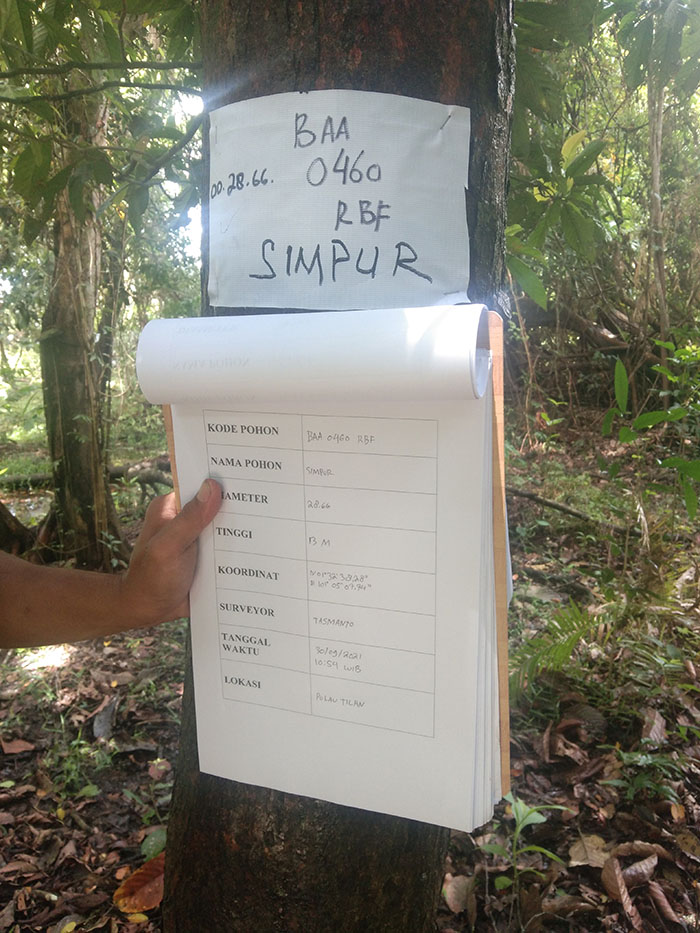 BAA
00.28.66. 0460
RBF
SIMPUR
KODE POHON BAA 0460 RBF
NAMA POHON SIMPUR
IAMETER 28.66
TINGGI 13 M
KOORDINAT
SURVEYOR TASMANTO
TANGGAL
WAKTU
30/09/2021
10:59 WIB
LOKASI PULAU TIGAN